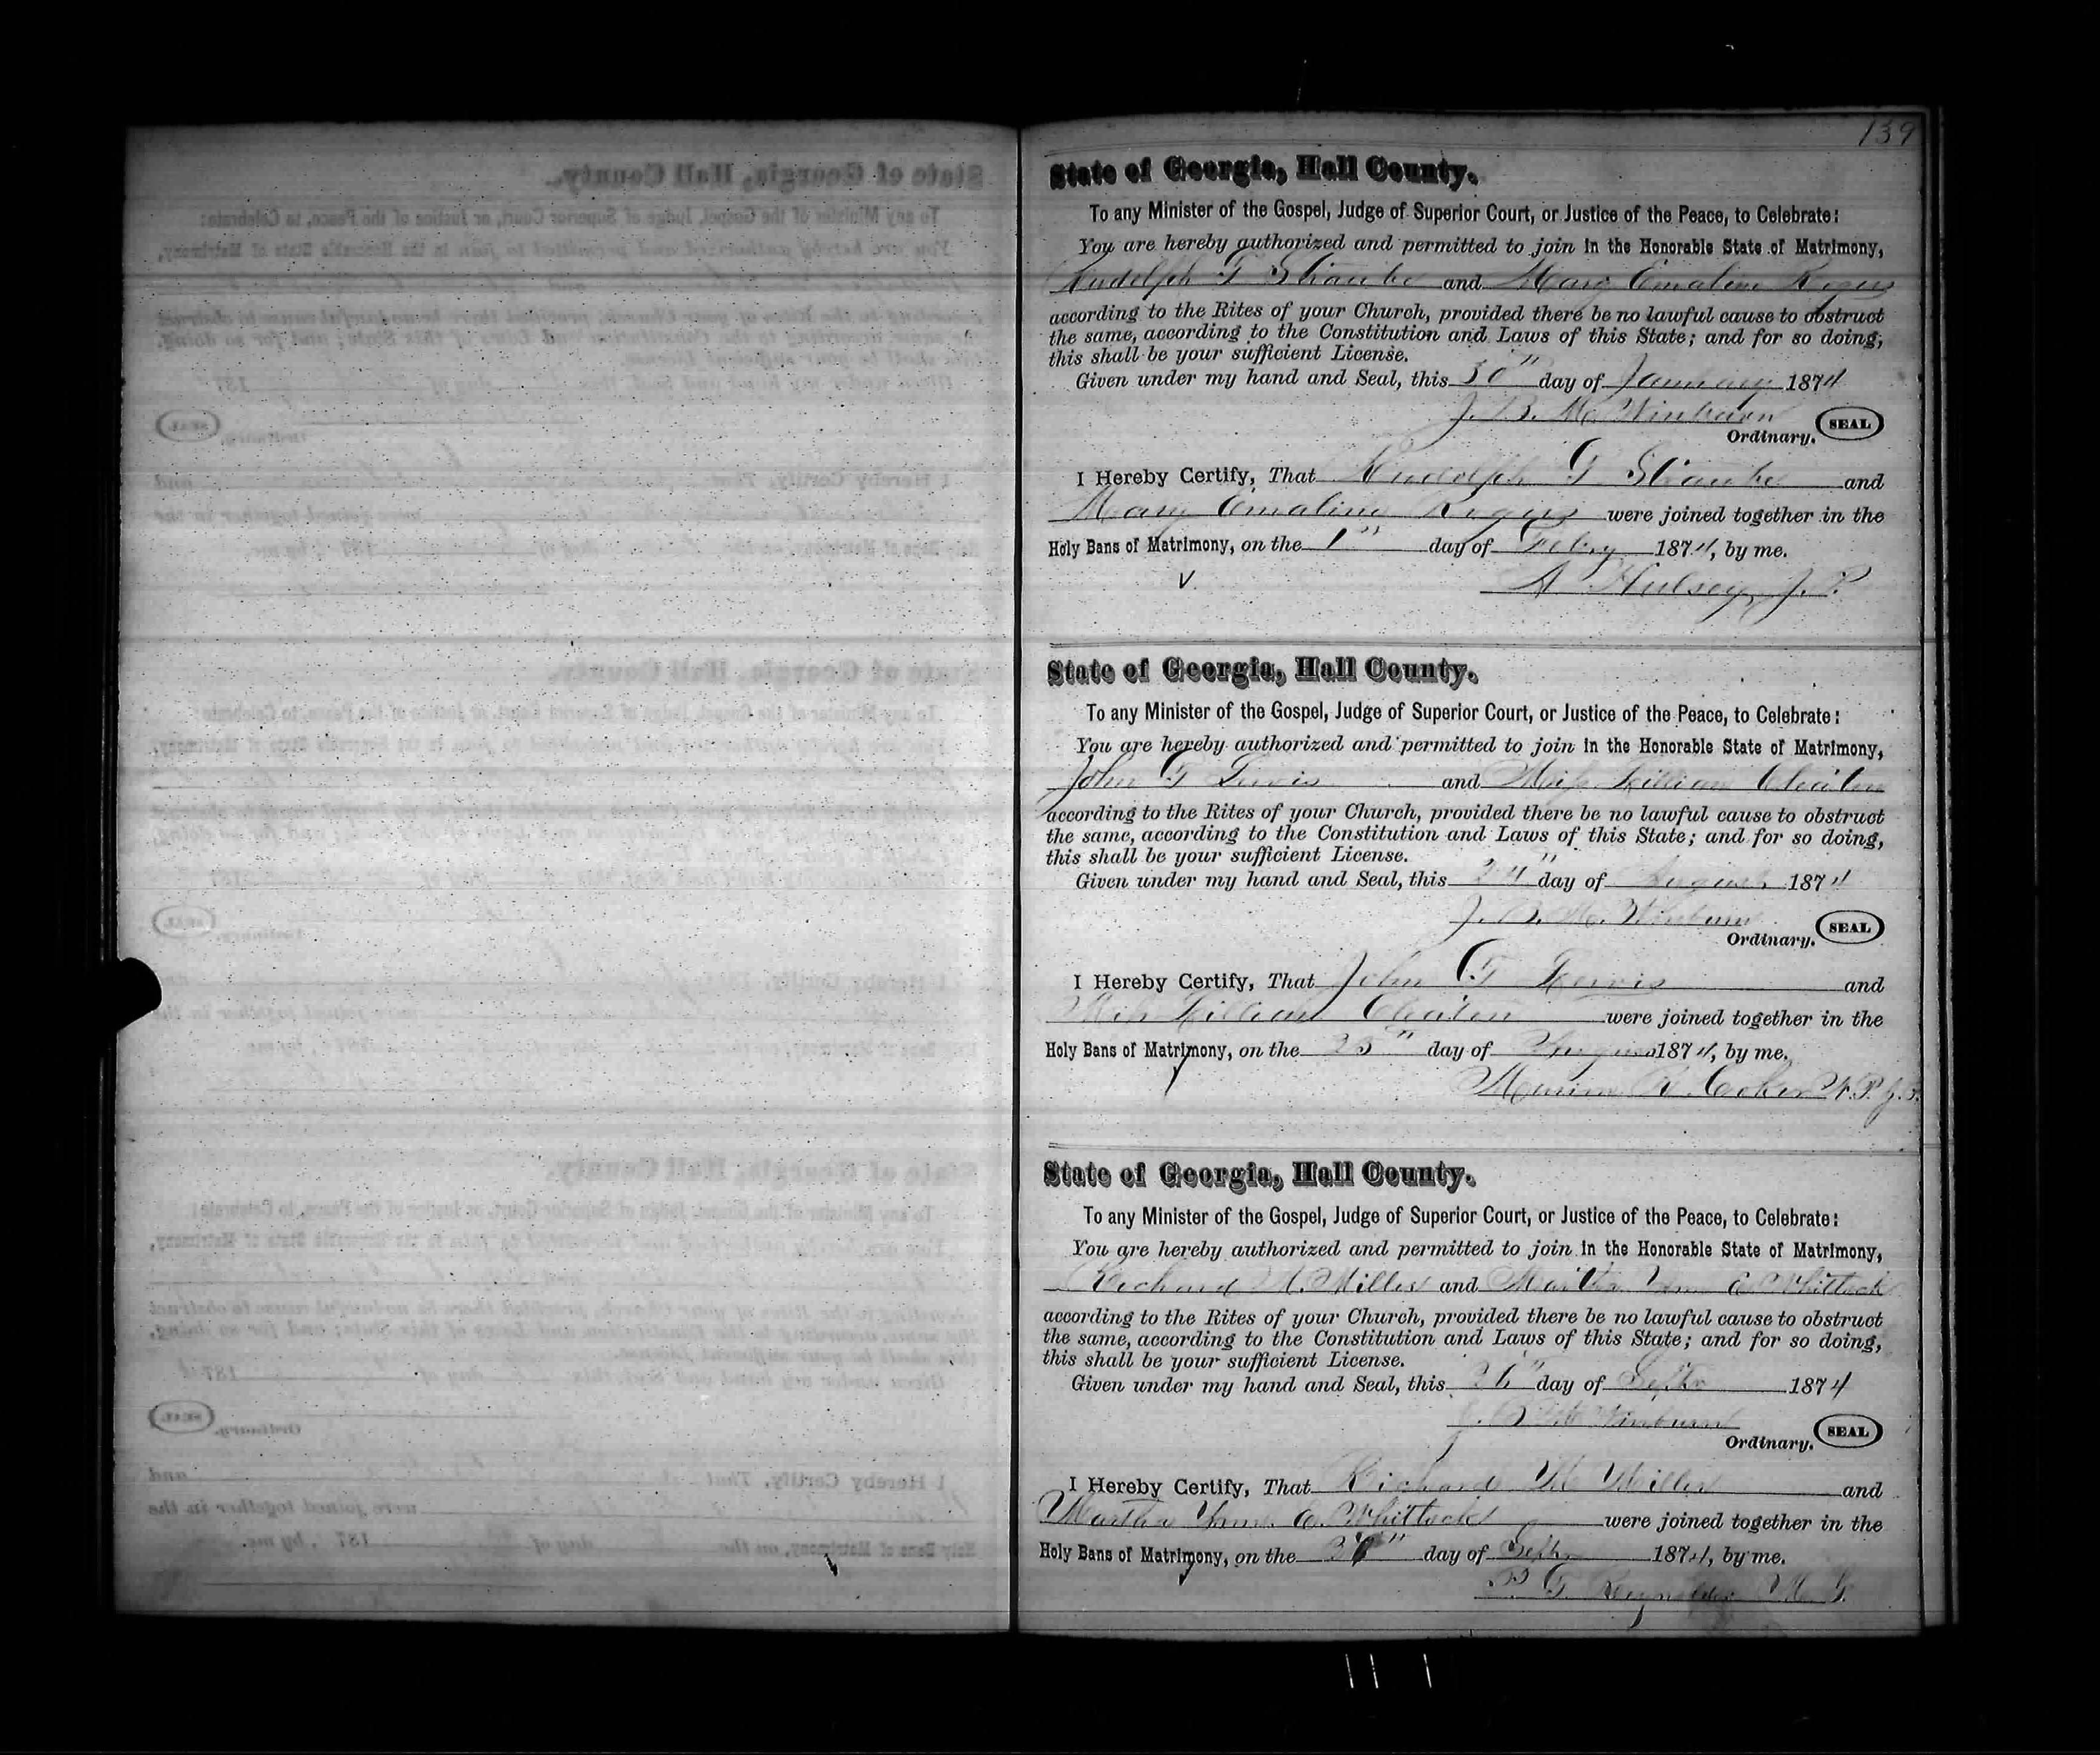 139
State of Georgia, Hall County.
To any Minister of the Gospel, Judge of Superior Court, or Justice of the Peace, to Celebrate:
You are hereby authorized and permitted to join in the Honorable State of Matrimony,
Rudolph T Straube and Mary Emaline
according to the Rites of your Church, provided there be no lawful cause to obstruct
the same, according to the Constitution and Laws of this State; and for so doing,
this shall be your sufficient License.
Given under my hand and Seal, this 30" day of January 1874
J. B. M. Winburn SEAL
Ordinary.
I Hereby Certify, That Rudolph T Straube and
Mary Emaline were joined together in the
Holy Bans of Matrimony, on the 1" day of Feby 1874, by me.
A Hulsey, J. P.
State of Georgia, Hall County.
To any Minister of the Gospel, Judge of Superior Court, or Justice of the Peace, to Celebrate:
You are hereby authorized and permitted to join in the Honorable State of Matrimony,
John T Lewis and Miss Lillian
according to the Rites of your Church, provided there be no lawful cause to obstruct
the same, according to the Constitution and Laws of this State; and for so doing,
this shall be your sufficient License.
Given under my hand and Seal, this 24" day of August 1874
J. B. M. Winburn SEAL
Ordinary.
I Hereby Certify, That John T Lewis and
Miss Lillian were joined together in the
Holy Bans of Matrimony, on the 25" day of August 1874, by me.
N. P. J. P.
State of Georgia, Hall County.
To any Minister of the Gospel, Judge of Superior Court, or Justice of the Peace, to Celebrate:
You are hereby authorized and permitted to join in the Honorable State of Matrimony,
Richard M. Miller and Martha Ann E. Whittock
according to the Rites of your Church, provided there be no lawful cause to obstruct
the same, according to the Constitution and Laws of this State; and for so doing,
this shall be your sufficient License.
Given under my hand and Seal, this 26" day of Septr 1874
J. B. M. Winburn SEAL
Ordinary.
I Hereby Certify, That Richard M Miller and
Martha Ann E. Whittock were joined together in the
Holy Bans of Matrimony, on the day of Septr 1874, by me.
Reynolds M. G.